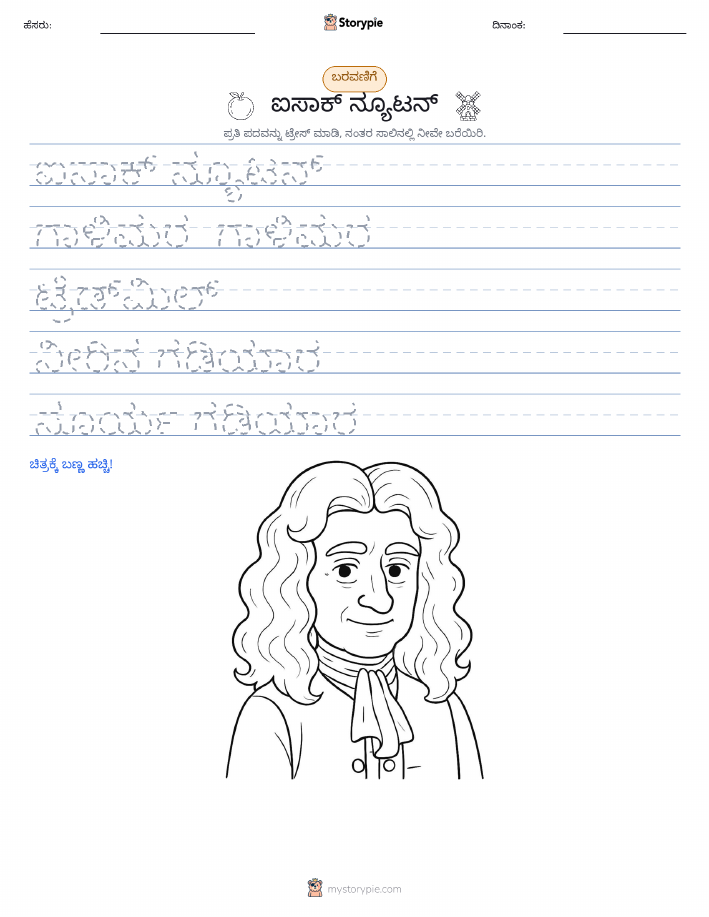 ಹೆಸರು:
Storypie
ದಿನಾಂಕ:
ಬರವಣಿಗೆ
ಐಸಾಕ್ ನ್ಯೂಟನ್
ಪ್ರತಿ ಪದವನ್ನು ಟ್ರೇಸ್ ಮಾಡಿ, ನಂತರ ಸಾಲಿನಲ್ಲಿ ನೀವೇ ಬರೆಯಿರಿ.
ಐಸಾಕ್ ನ್ಯೂಟನ್
ಗಾಳಿಮರ ಗಾಳಿಮರ
ಟ್ರೆಡ್‌ಮಿಲ್
ನೀರಿನ ಗಡಿಯಾರ
ಸೂರ್ಯ ಗಡಿಯಾರ
ಚಿತ್ರಕ್ಕೆ ಬಣ್ಣ ಹಚ್ಚಿ!
mystorypie.com